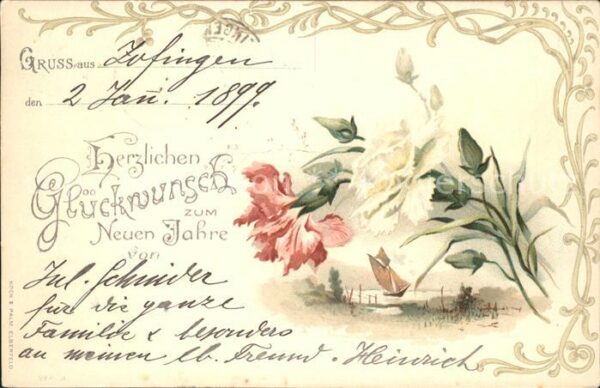 GRUSS aus Zofingen
den 2 Jan. 1899.
Herzlichen
Glückwunsch
ZUM
Neuen Jahre
von
Jul. Schnider
für die ganze
Familie & besonders
an meinen lb. Freund Heinrich
KOCH & PALM, ELBERFELD